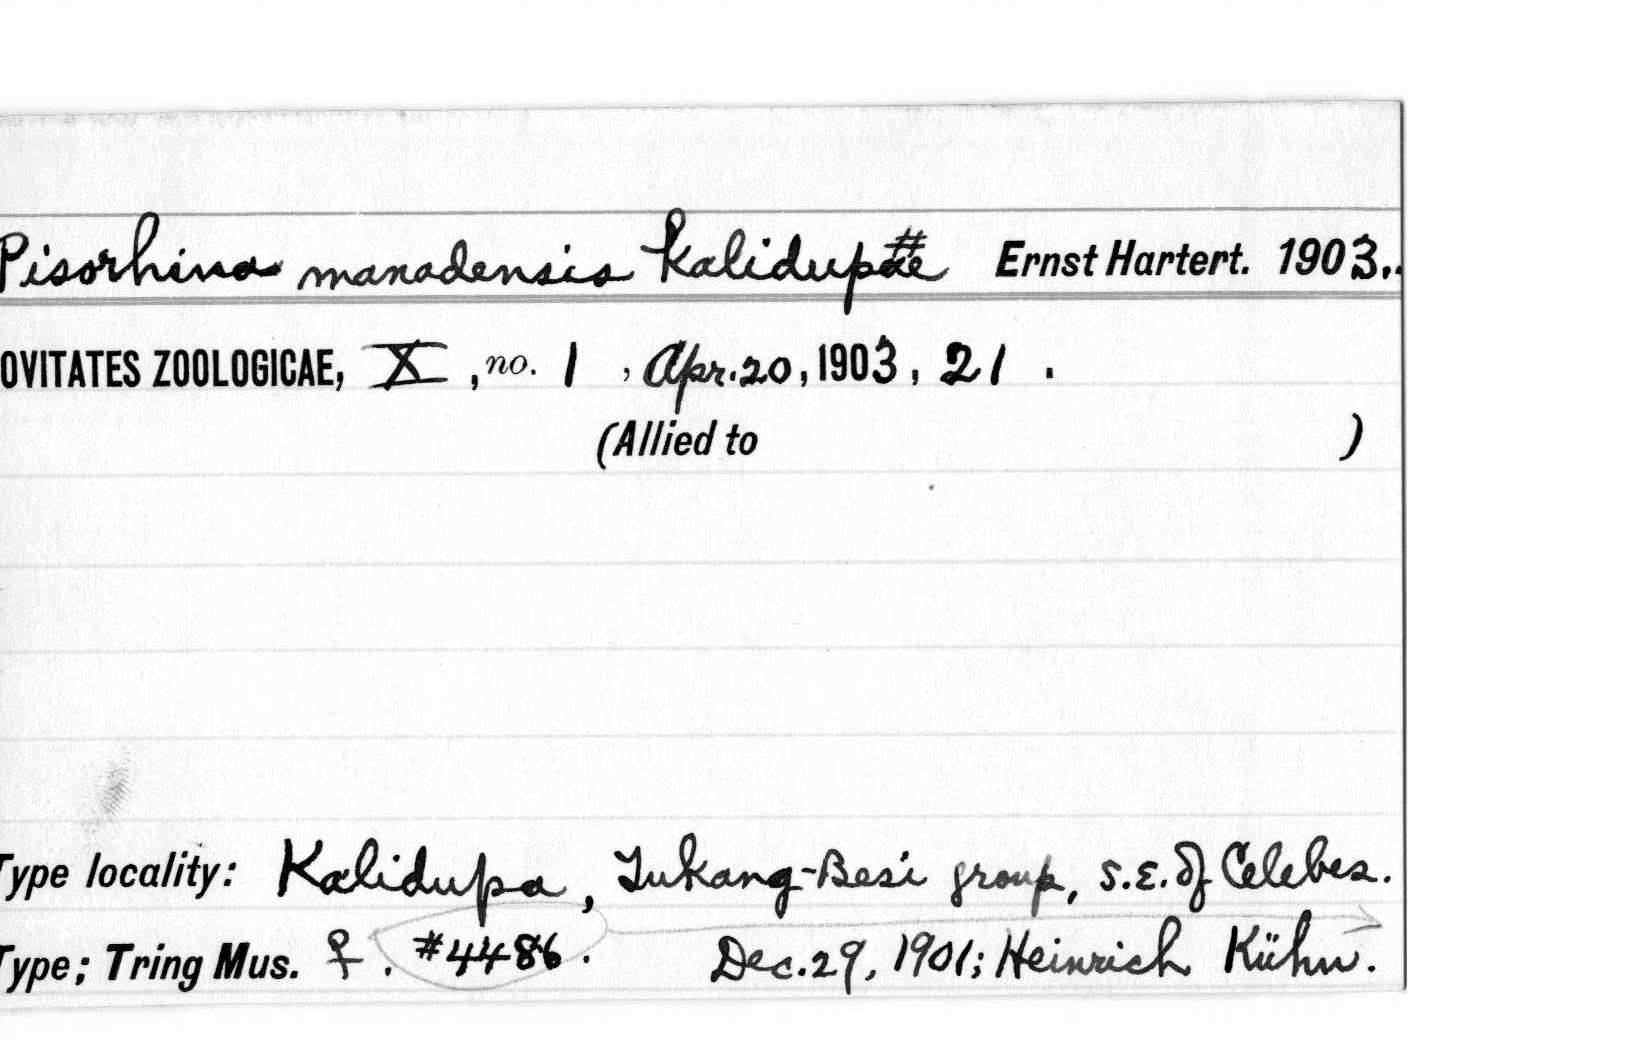 Pisorhina manadensis kalidupae # Ernst Hartert. 1903..
OVITATES ZOOLOGICAE, X, no. 1, Apr. 20, 1903, 21.
(Allied to )
Type locality: Kalidupa, Tukang-Besi group, S.E. of Celebes.
Type; Tring Mus. ♀. #4486. Dec. 29, 1901; Heinrich Kühn.